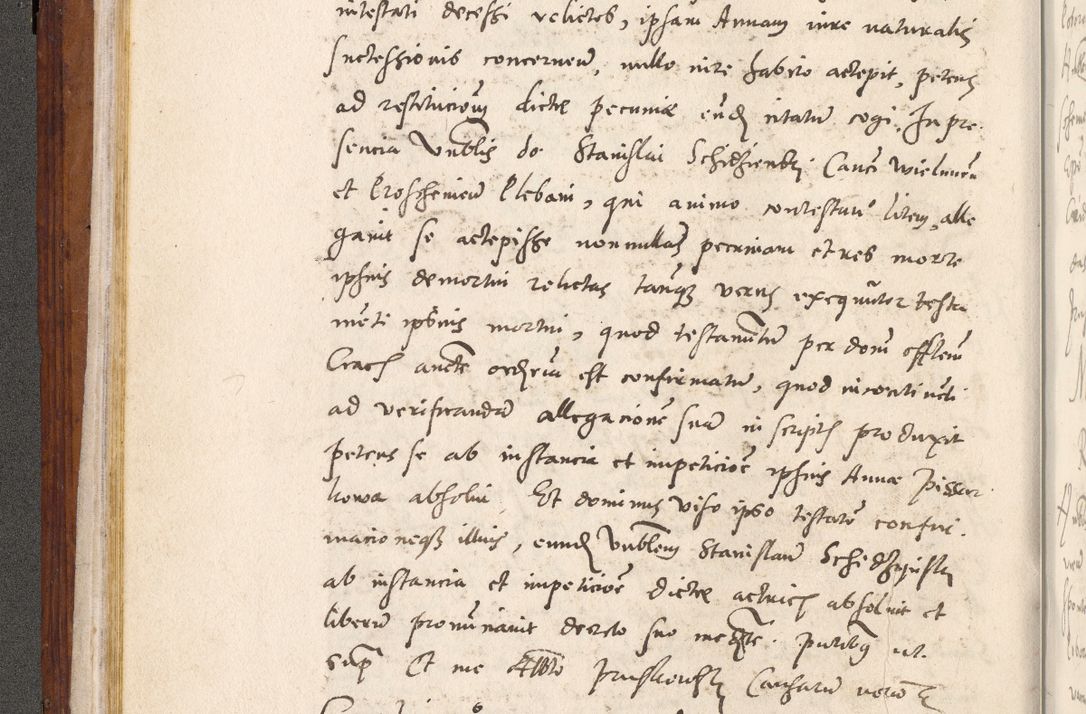 intestati decessi relictos, ipsam Annam iure naturalis
successionis concernen, nullo iure habito accepit, petens
ad restitucionem dicte pecunie eund citatum cogi. In pre
sencia Vnblis do Stanislai Schidzienski Canci Wielunen
et Croschenien Plebani, qui animo contestan litem, alle
gauit se accepisse nonnullas pecuniam et res morte
ipsius demortui relictas tanq verus exequutor testa
menti ipsius mortui, quod testamentum per donum offlem
Crac ancte ordrium est confirmatum, quod incontinenti
ad verificandam allegacionem suam in scriptis produxit
petens se ab instancia et impeticioe ipsius Annae Pisar
kowa absolui. Et dominus viso ipso testato confir
macioneq illius, eund Vnblem Stanislaum Schidzinski
ab instancia et impeticioe dicte actricis absoluit et
liberum pronunciauit decreto suo mediante. Pntibus ut
supra Et me Alberto Pruskowski Causarum notario